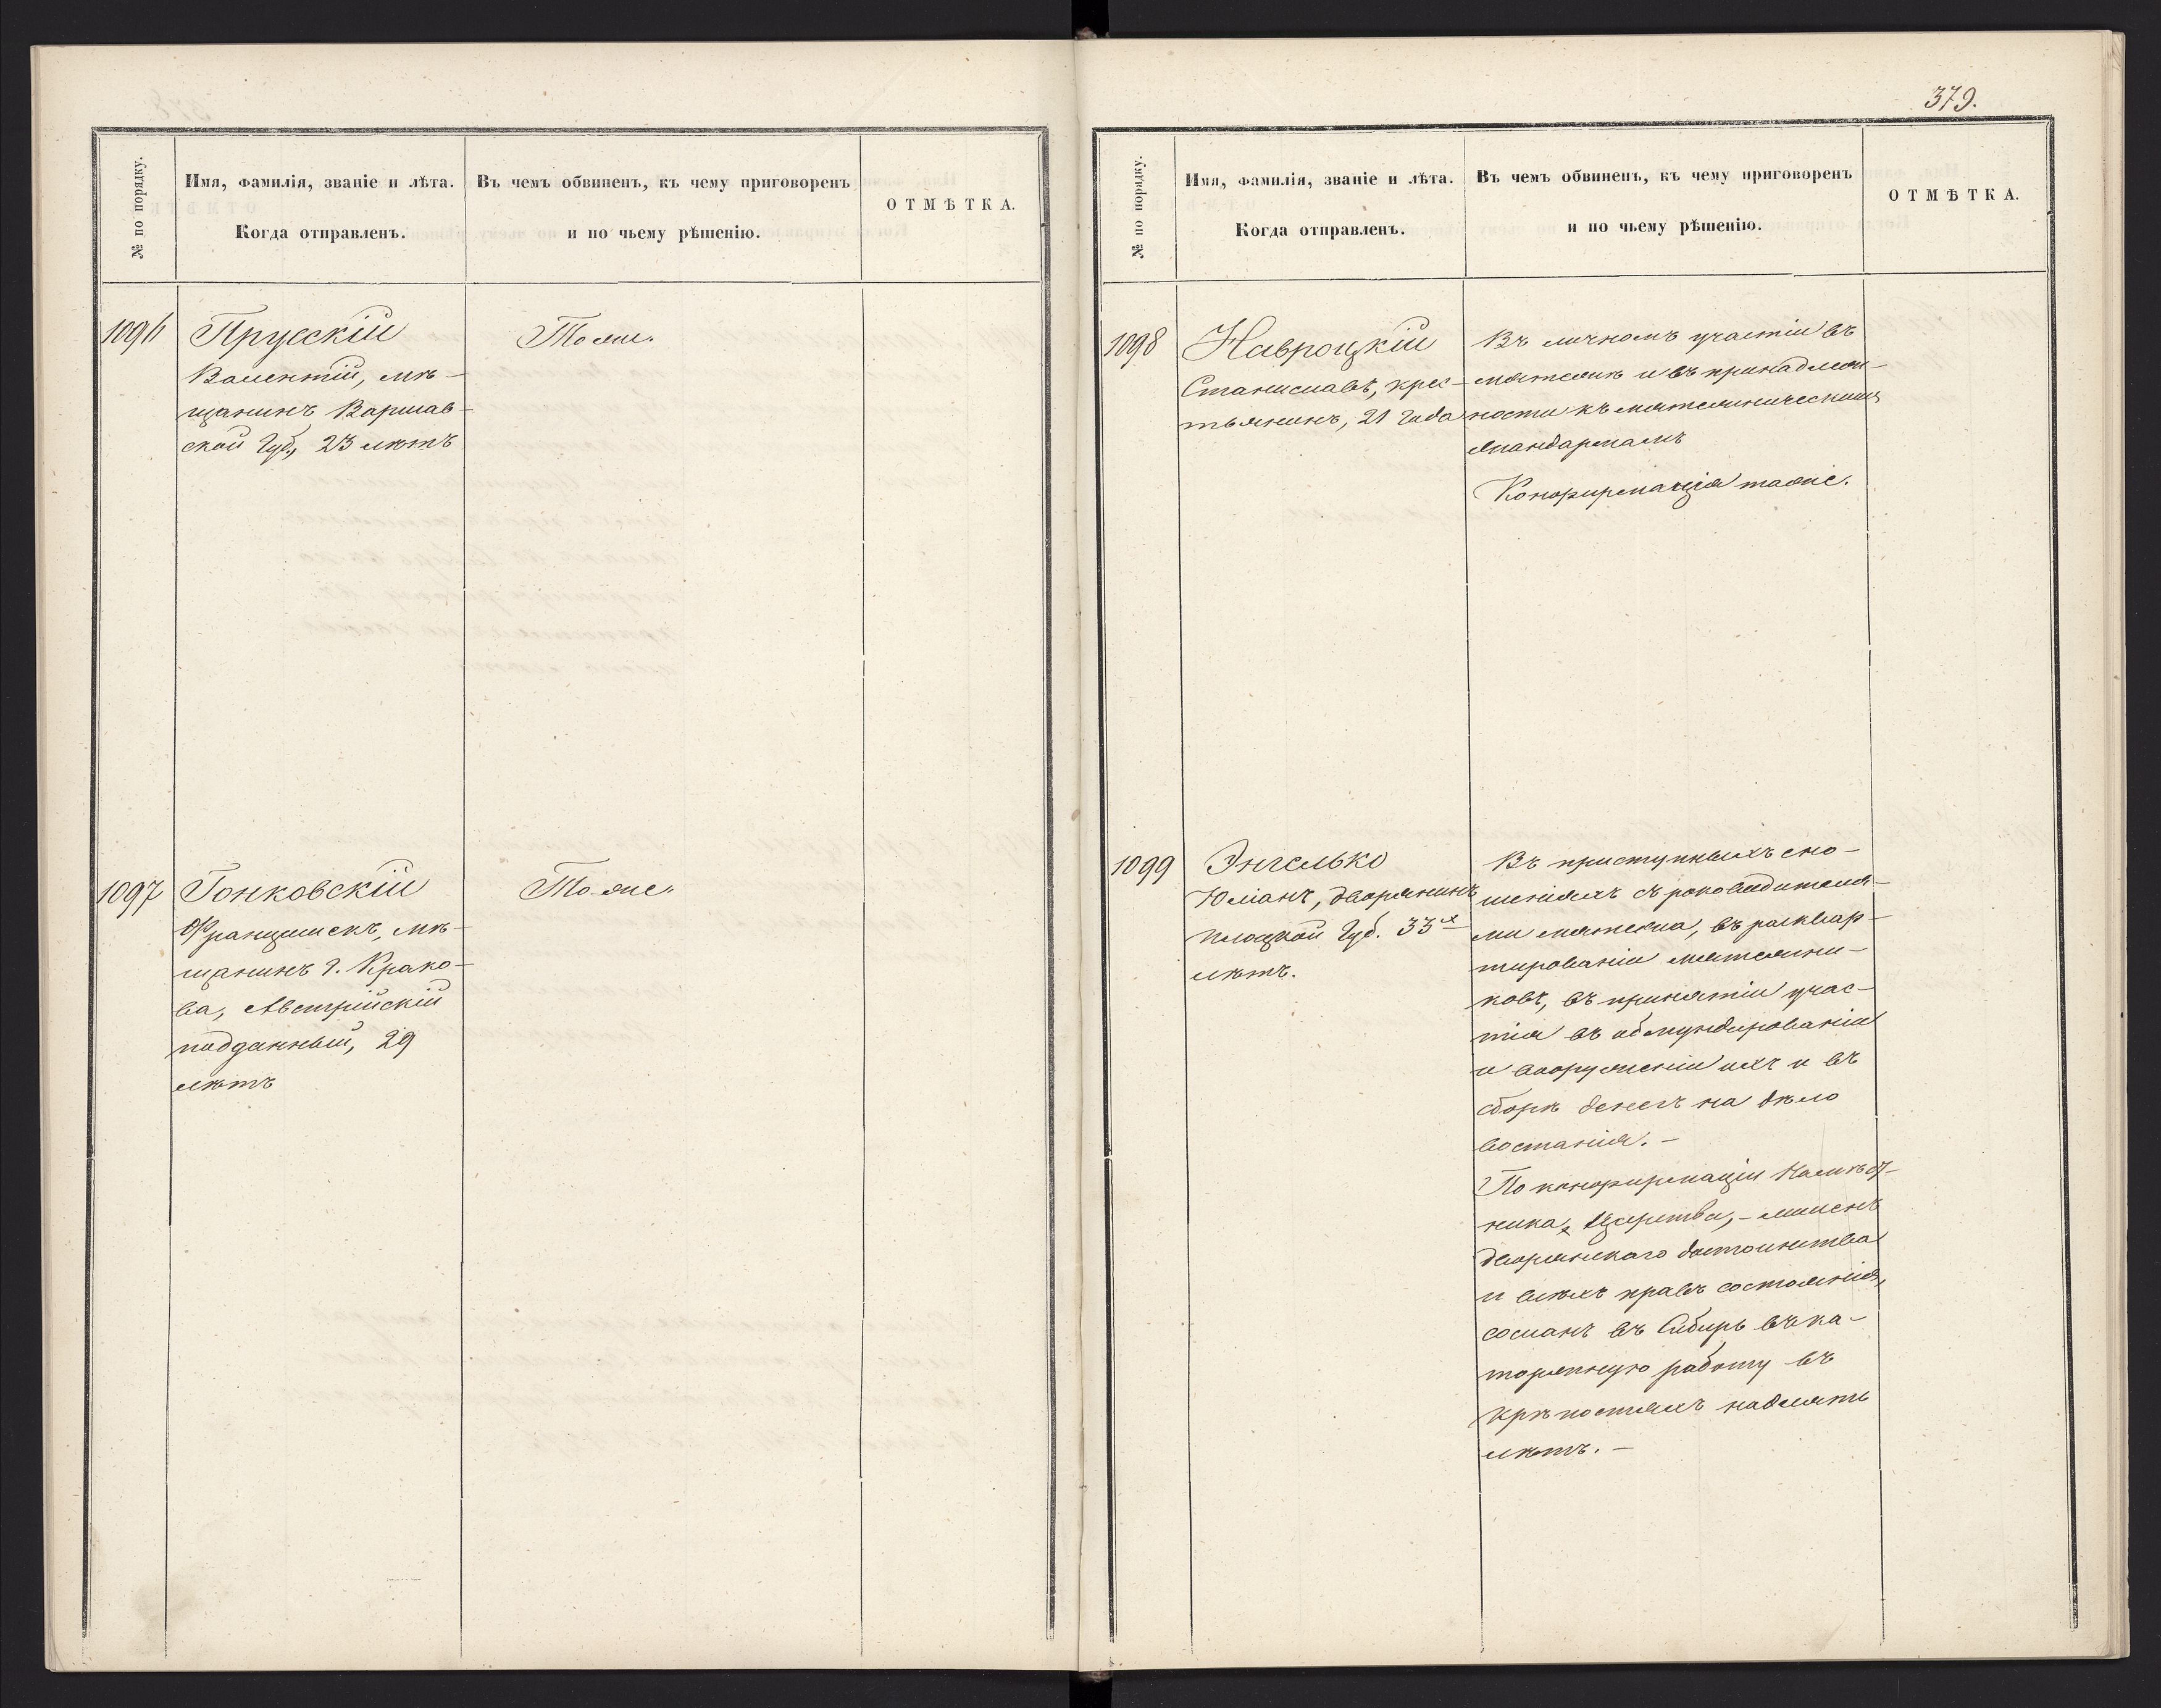 № по порядку.
Имя, фамилія, званіе и лѣта.
Когда отправленъ.
Въ чемъ обвиненъ, къ чему приговоренъ
и по чьему рѣшенію.
ОТМѢТКА.
1096
Прусскій
Валентій, мѣ-
щанинъ Варшав-
ской Губ., 23 лѣтъ
Тоже.
1097
Гонковскій
Францишекъ, мѣ-
щанинъ г. Крако-
ва, Австрійскій
подданный, 29
лѣтъ
Тоже.
379.
№ по порядку.
Имя, фамилія, званіе и лѣта.
Когда отправленъ.
Въ чемъ обвиненъ, къ чему приговоренъ
и по чьему рѣшенію.
ОТМѢТКА.
1098
Навроцкій
Станиславъ, крес-
тьянинъ, 21 года
Въ личномъ участіи въ
мятежѣ и въ принадлеж-
ности къ мятежническимъ
жандармамъ
Конфирмація таже.
1099
Энгелько
Юліанъ, дворянинъ
Плоцкой Губ. 33х
лѣтъ.
Въ приступныхъ сно-
шеніяхъ съ роководителя-
ми мятежа, въ расквар-
тированіи мятежни-
ковъ, въ принятіи учас-
тія въ обмундированіи
и вооруженіи ихъ и въ
сборѣ денегъ на дѣло
востанія. -
По конфирмаціи Намѣст-
ника, Царства, - лишенъ
дворянскаго достоинства
и всѣхъ правъ состоянія,
сосланъ въ Сибирь въ ка-
торжную работу въ
крѣпостяхъ на десять
лѣтъ. -